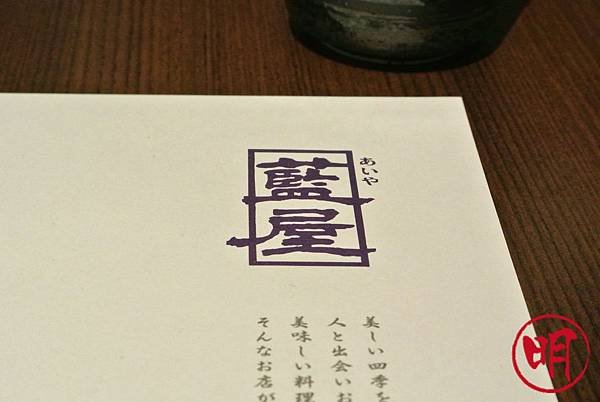 藍屋
あいや
美しい四季を
人と出会いお
美味しい料理
そんなお店が
明